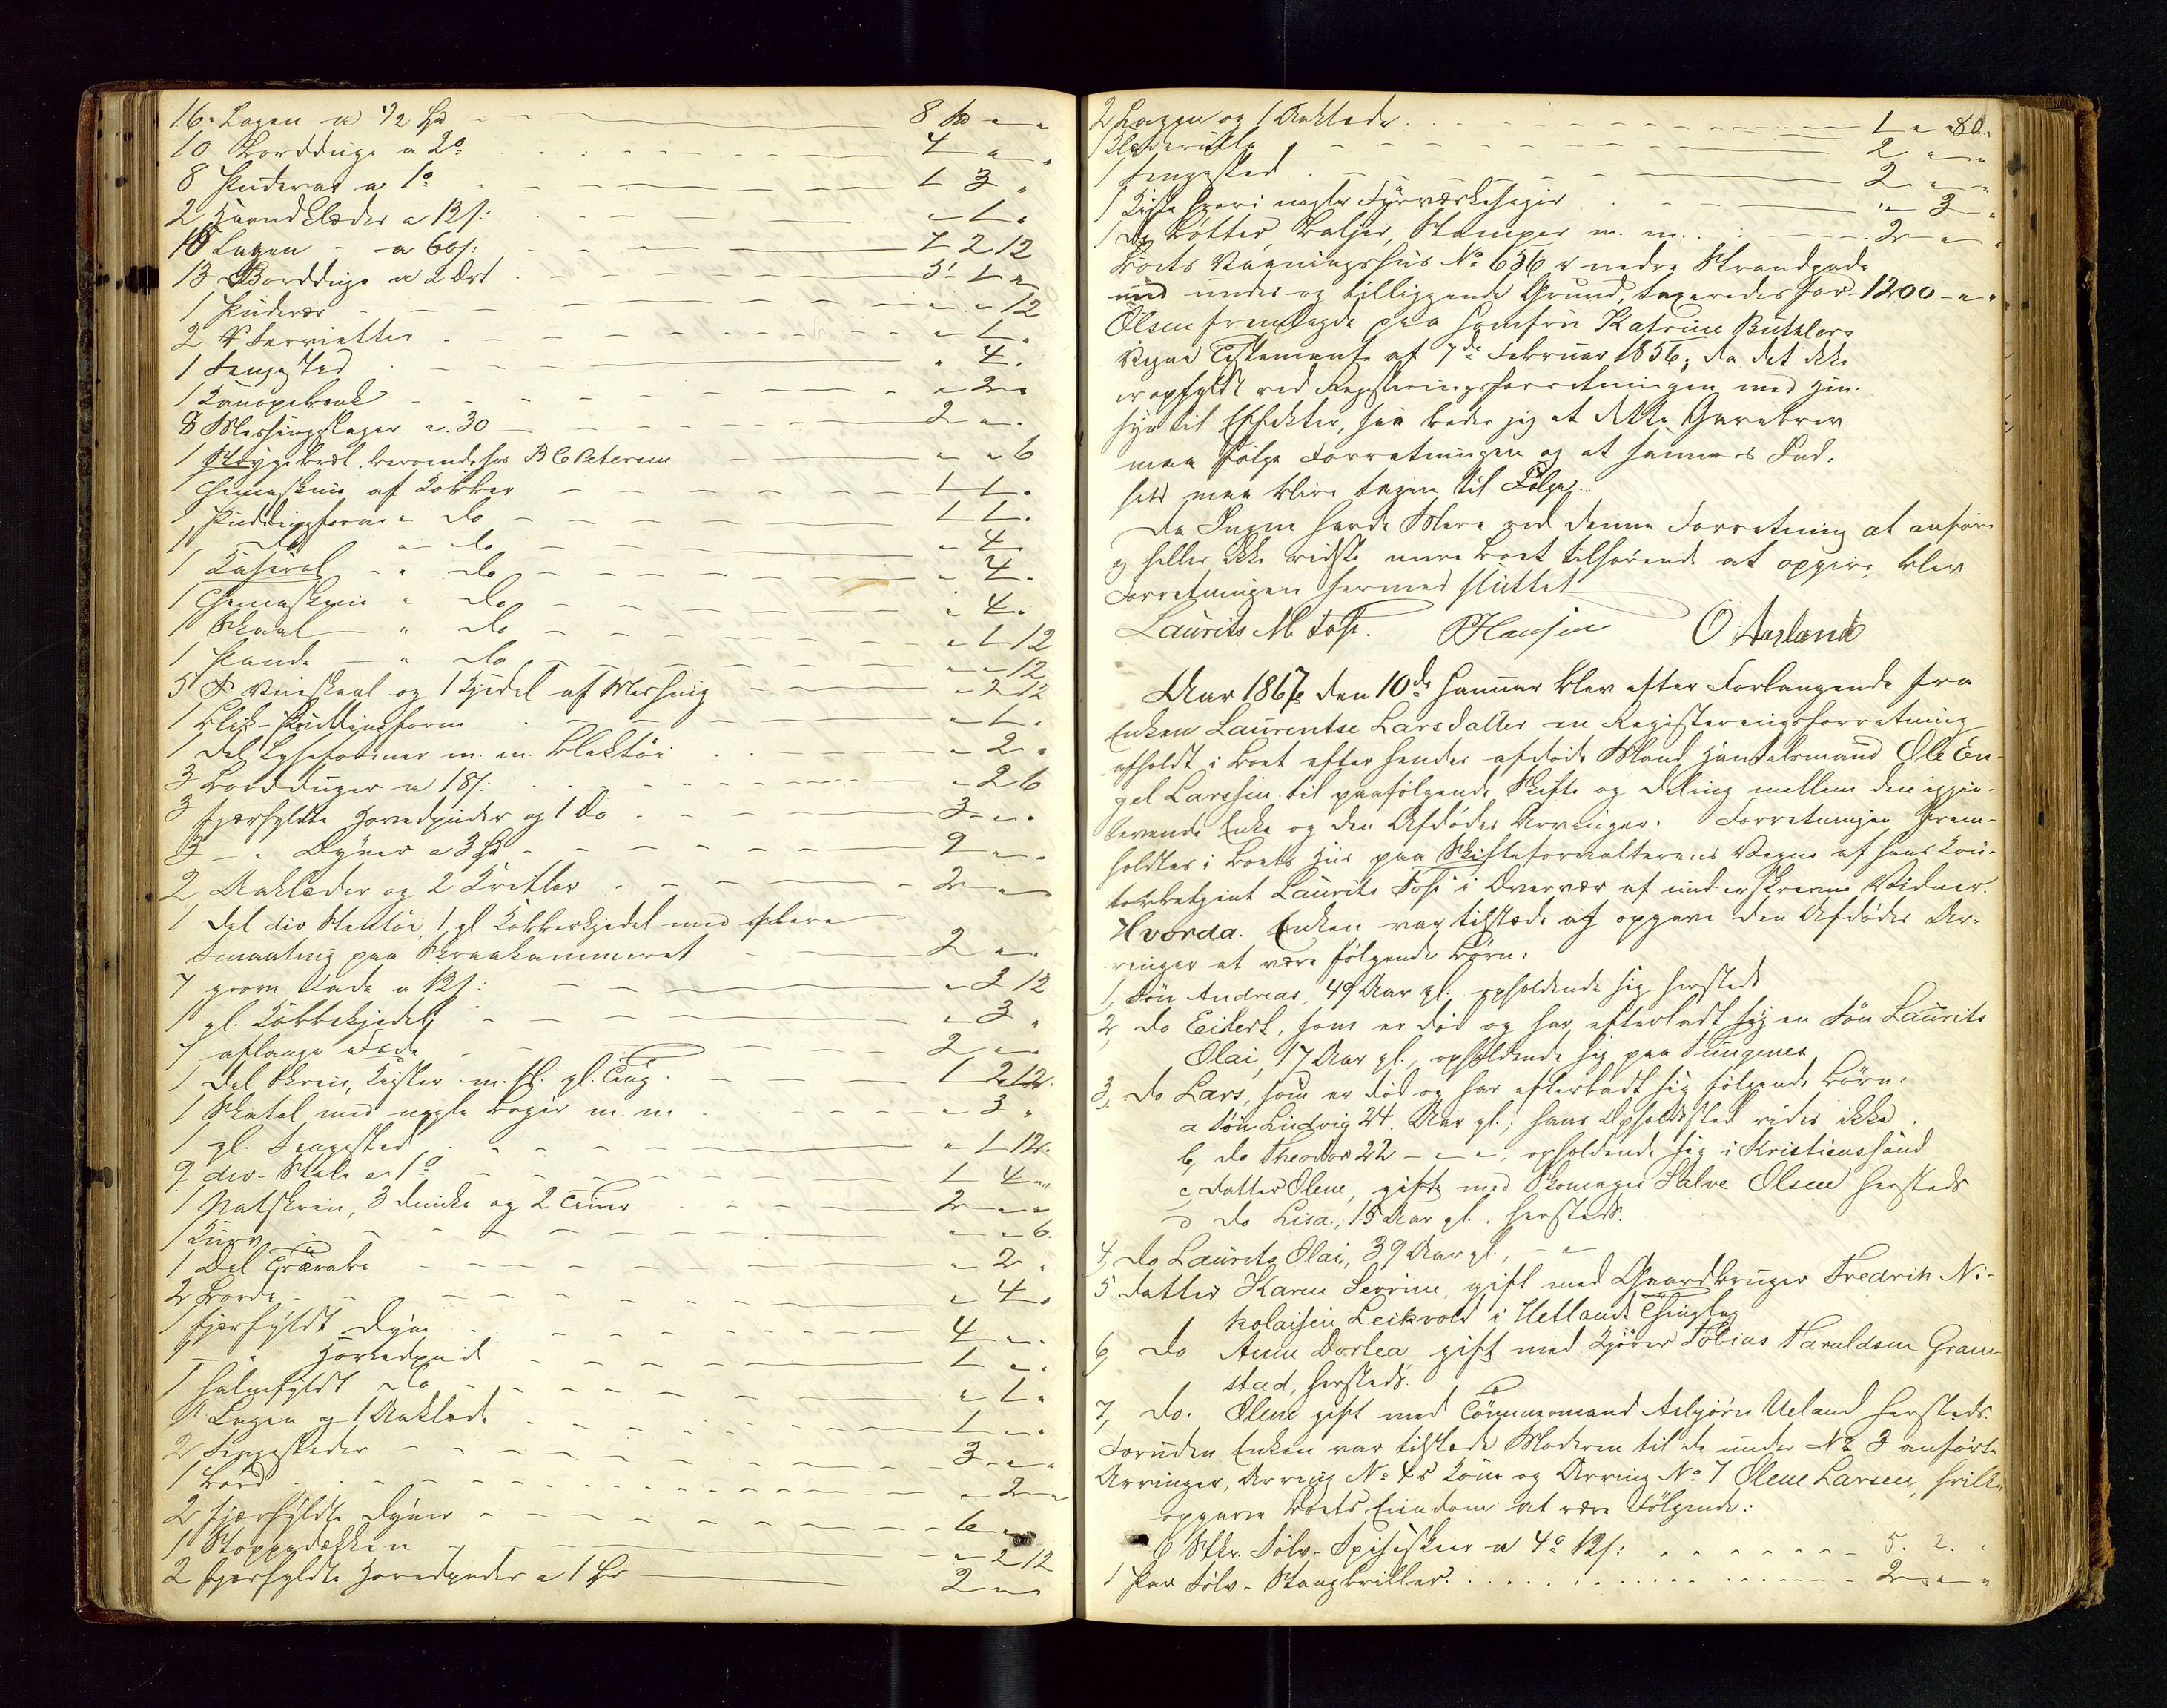 16. Lagen a 1/2 Spd 8 Spd " "
10 Bordduge a 2° 4 " "
8 Pudevar a 1° 1 3 "
2 Haandklæder a 12/: " 1 "
10 Lagen - a 60/: 7 2 12
13 Bordduge a 2 Ort 5 1 "
1 Pudevar " " 12
2 Servietter " 1 "
1 Sengested " 4 "
1 Kanapebænk " 2 "
8 Messingstager a 30 2 " "
1 Strygebræt, beroende hos B C Petersen " " 6
1 Themaskine af Kobber 1 1 "
1 Puddingform " Do 1 1 "
1 Do " Do " 4
1 Kaserol " Do " 4 "
1 Themaskine " Do " 4 "
1 Skaal " Do " 1 12
1 Pande " Do " " 12
5 Veieskaal og 1 Kjedel af Messing " 2 12
1 Blik-Puddingform " 1 "
1 Del Lyseformer m. m. Bliktøi " 2 "
3 Bordduger a 18/: " 2 6
3 fjærfyldte Hovedpuder og 1 Do 3 " "
3 " Dyner a 3 Spd 9 " "
2 Aaklæder og 2 Kvitler 2 " "
1 Del div Stentøi, 1 gl. Kobberkjedel med flere
Smaating paa Skraakammeret 2 " "
7 grove Fade a 12/: " 3 12
1 gl. Kobberkjedel " 3 "
7 aflange Fade 2 " "
1 Del Skrin, Kister m. fl. gl. Ting 1 2 12.
1 Skatol med nogle Bøger m. m " 3 "
1 gl. Sengested " 1 12.
9 div. Stole a 1° 1 4 "
1 Matskrin, 3 Dunke og 2 Tiner 2 " "
1 Kurv " " 6.
1 Del Trævare " 2 "
2 Borde " 4 "
1 fjærfyldt Dyne 4 " "
1 " Hovedpude 1 " "
1 halmfyldt do " 1 "
1 Lagen og 1 Aaklæde 1 " "
2 Sengesteder 3 " "
1 Bord " 2 "
2 fjærfyldte Dyner 6 " "
1 Stoppedækken " 2 12
2 fjærfyldte Hovedpuder a 1 Spd 2 " "
2 Lagen og 1 Aaklæde 1 " "
1 Klæderulle 2 " "
1 Sengested 2 " "
1 Kiste hvori nogle Fyrværkesager " 3 "
1 Del Bøtter, Baljer, Stamper m. m. 2 " "
Boets Vaaningshus No 656 i nedre Strandgade
med under- og tilliggende Grund, taxeredes for 1200 " "
Olsen fremlagde paa Jomfru Katrine Buthlers
Vegne Testamente af 7de Februar 1856; da det ikke
er opfyldt ved Registreringsforretningen med Hen-
syn til Effekter, saa beder jeg at dette Gavebrev
maa følge Forretningen og at sammes Ind-
hold maa blive tagen til Følge.
Da Ingen havde Mere ved denne Forretning at anføre
og heller ikke vidste mere Boet tilhørende at opgive, blev
Forretningen hermed sluttet
Laurits M. Foss. P Hansen O Aasland
Aar 1867, den 10de Januar blev efter Forlangende fra
Enken Laurentse Larsdatter en Registreringsforretning
afholdt i Boet efter hendes afdøde Mand Handelsmand Ole En-
gel Larssen til paafølgende Skifte og Deling mellem den igjen-
levende Enke og den Afdødes Arvinger. Forretningen frem-
holdtes i Boets Hus paa Skifteforvalterens Vegne af hans Kon-
torbetjent Laurits Foss i Overvær af underskrevne Vidner.
Hvorda. Enken var tilstæde og opgave den Afdødes Ar-
vinger at være følgende Børn:
1, Søn Andreas, 49 Aar gl. opholdende sig hersteds
2, do Eilert, som er død og har efterladt sig en Søn Laurits
Olai, 17 Aar gl., opholdende sig paa Tungenes
3, do Lars, som er død og har efterladt sig følgende Børn:
a Søn Ludvig 24. Aar gl.; hans Opholdssted vides ikke.
b, do Theodor 22 - " " opholdende sig i Kristianssund
c, Datter Olene, gift med Skomager Salve Olsen hersteds
d do Lisa, 15 Aar gl. hersteds.
4, do Laurits Olai, 39 Aar gl., - "
5 Datter Karen Severine, gift med Gaardbruger Fredrik Ni-
kolaisen Leikvold i Hetlands Thinglag
6, do Anne Dortea gift med Kjører Tobias Haraldsen Gram-
stad, hersteds.
7, do. Olene gift med Tømmermand Asbjørn Ueland hersteds.
Foruden Enken var tilstede Moderen til de under No 3 anførte
Arvinger, Arving No 4s Kone og Arving No 7 Olene Larsen, hvilke
opgave Boets Eiendom at være Følgende:
6 Stkr. Sølv-Spiseskeer a 4° 12/: 5. 2. "
1 Par Sølv-Stangbriller 2 " "